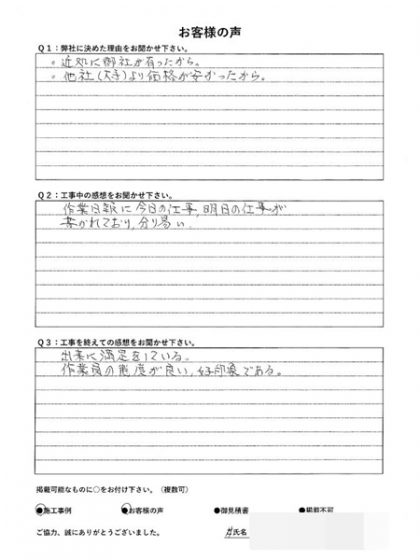 お客様の声
Q1：弊社に決めた理由をお聞かせ下さい。
・近処に御社が有ったから。
・他社(大手)より価格が安かったから。
Q2：工事中の感想をお聞かせ下さい。
作業日報に今日の仕事,明日の仕事が
書かれており,分り易い.
Q3：工事を終えての感想をお聞かせ下さい。
出来に満足をしている。
作業員の態度が良い,好印象である。
掲載可能なものに○をお付け下さい。（複数可）
●施工事例 ●お客様の声 ●御見積書 ●掲載不可
ご協力、誠にありがとうございました。 氏名